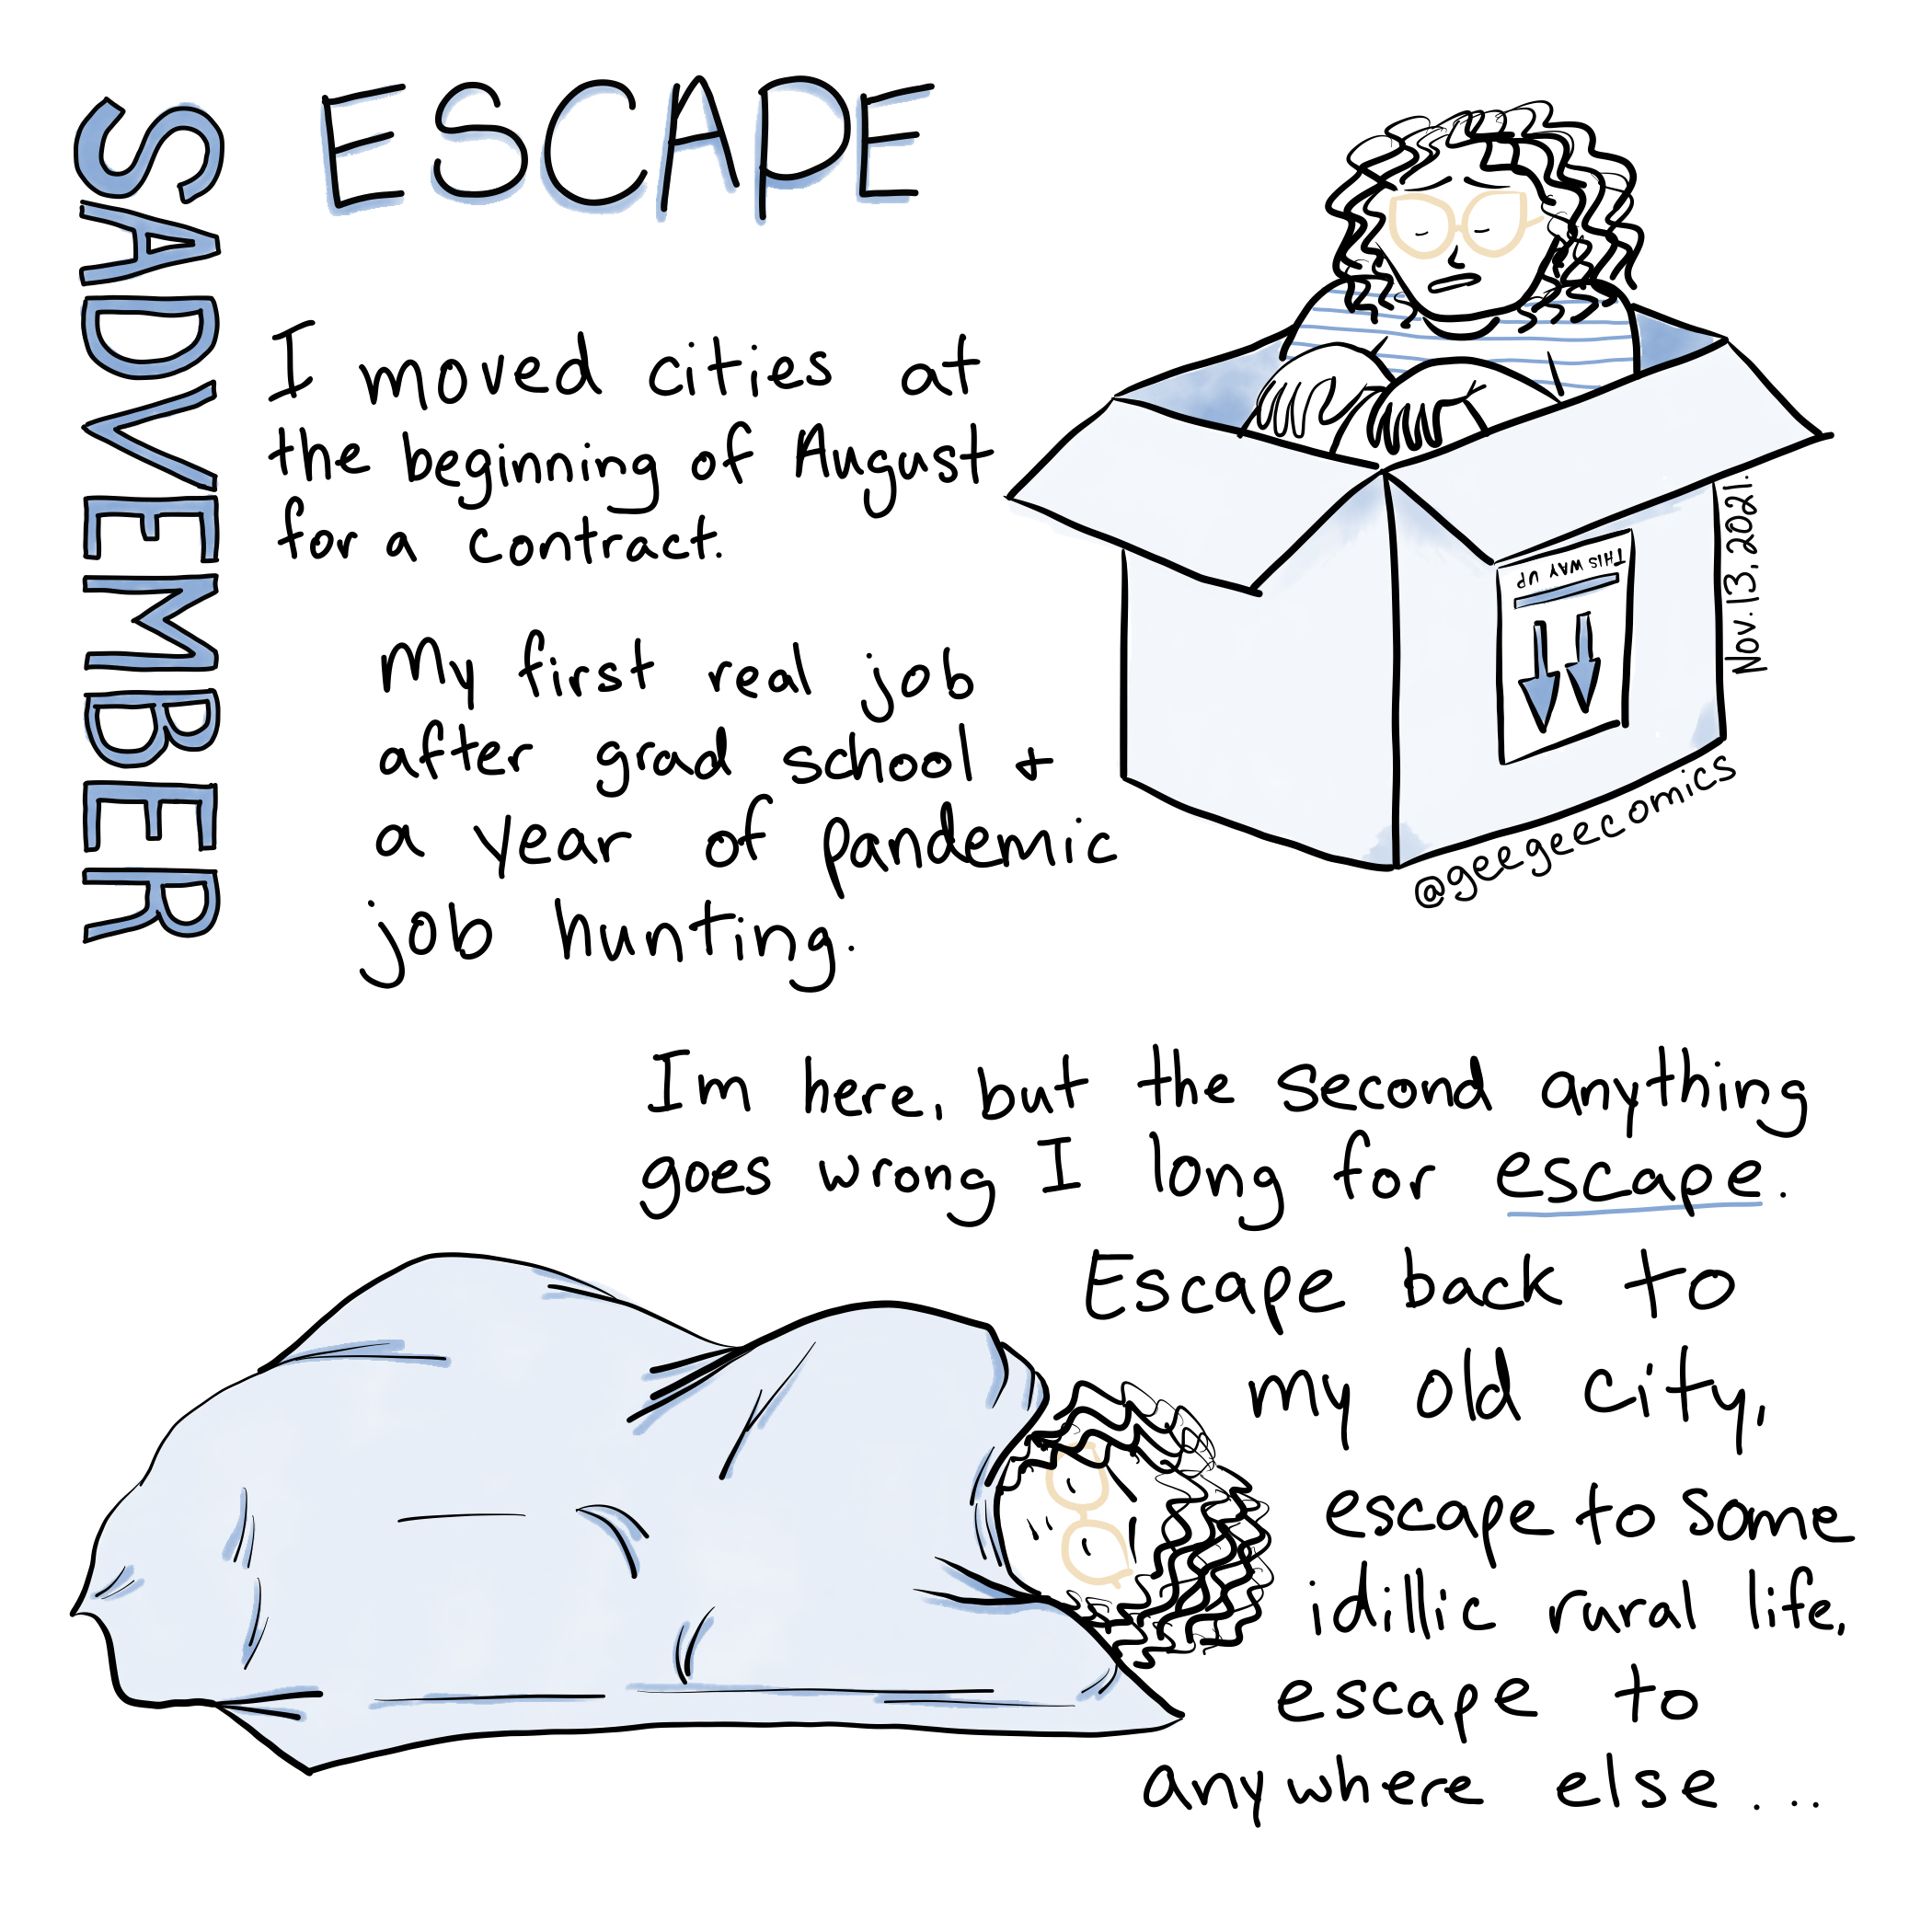 SADVEMBER
ESCAPE
I moved cities at
the beginning of August
for a contract.
My first real job
after grad school +
a year of pandemic
job hunting.
THIS WAY UP
Nov. 13, 2021.
@geegeecomics
Im here, but the second anything
goes wrong I long for escape.
Escape back to
my old city,
escape to some
idillic rural life,
escape to
anywhere else...